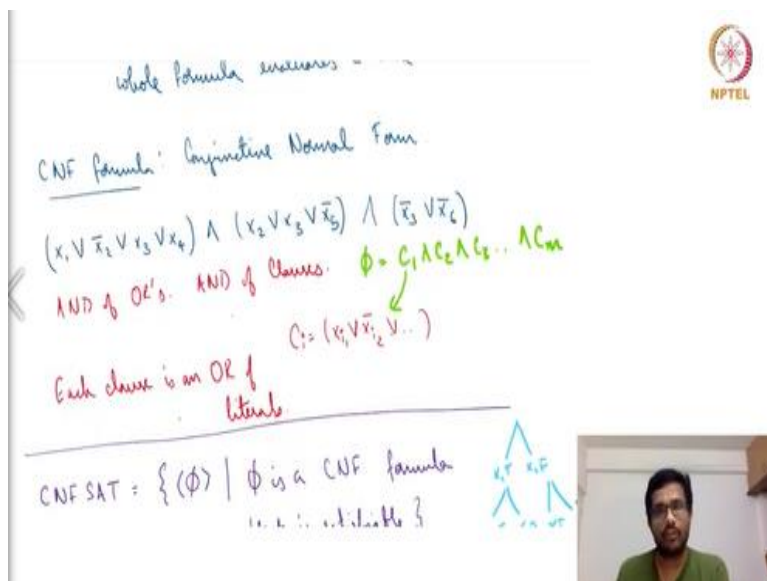 whole formula evaluates
NPTEL
CNF formula: Conjunctive Normal Form
(x₁ ∨ x̄₂ ∨ x₃ ∨ x₄) ∧ (x₂ ∨ x₃ ∨ x̄₅) ∧ (x̄₃ ∨ x̄₆)
AND of OR's. AND of Clauses. ϕ = C₁ ∧ C₂ ∧ C₃ .. ∧ Cₘ
Cᵢ = (xᵢ₁ ∨ x̄ᵢ₂ ∨ ..)
Each clause is an OR of
literals
CNF SAT = {⟨ϕ⟩ | ϕ is a CNF formula
x₁T x₁F
satisfiable }